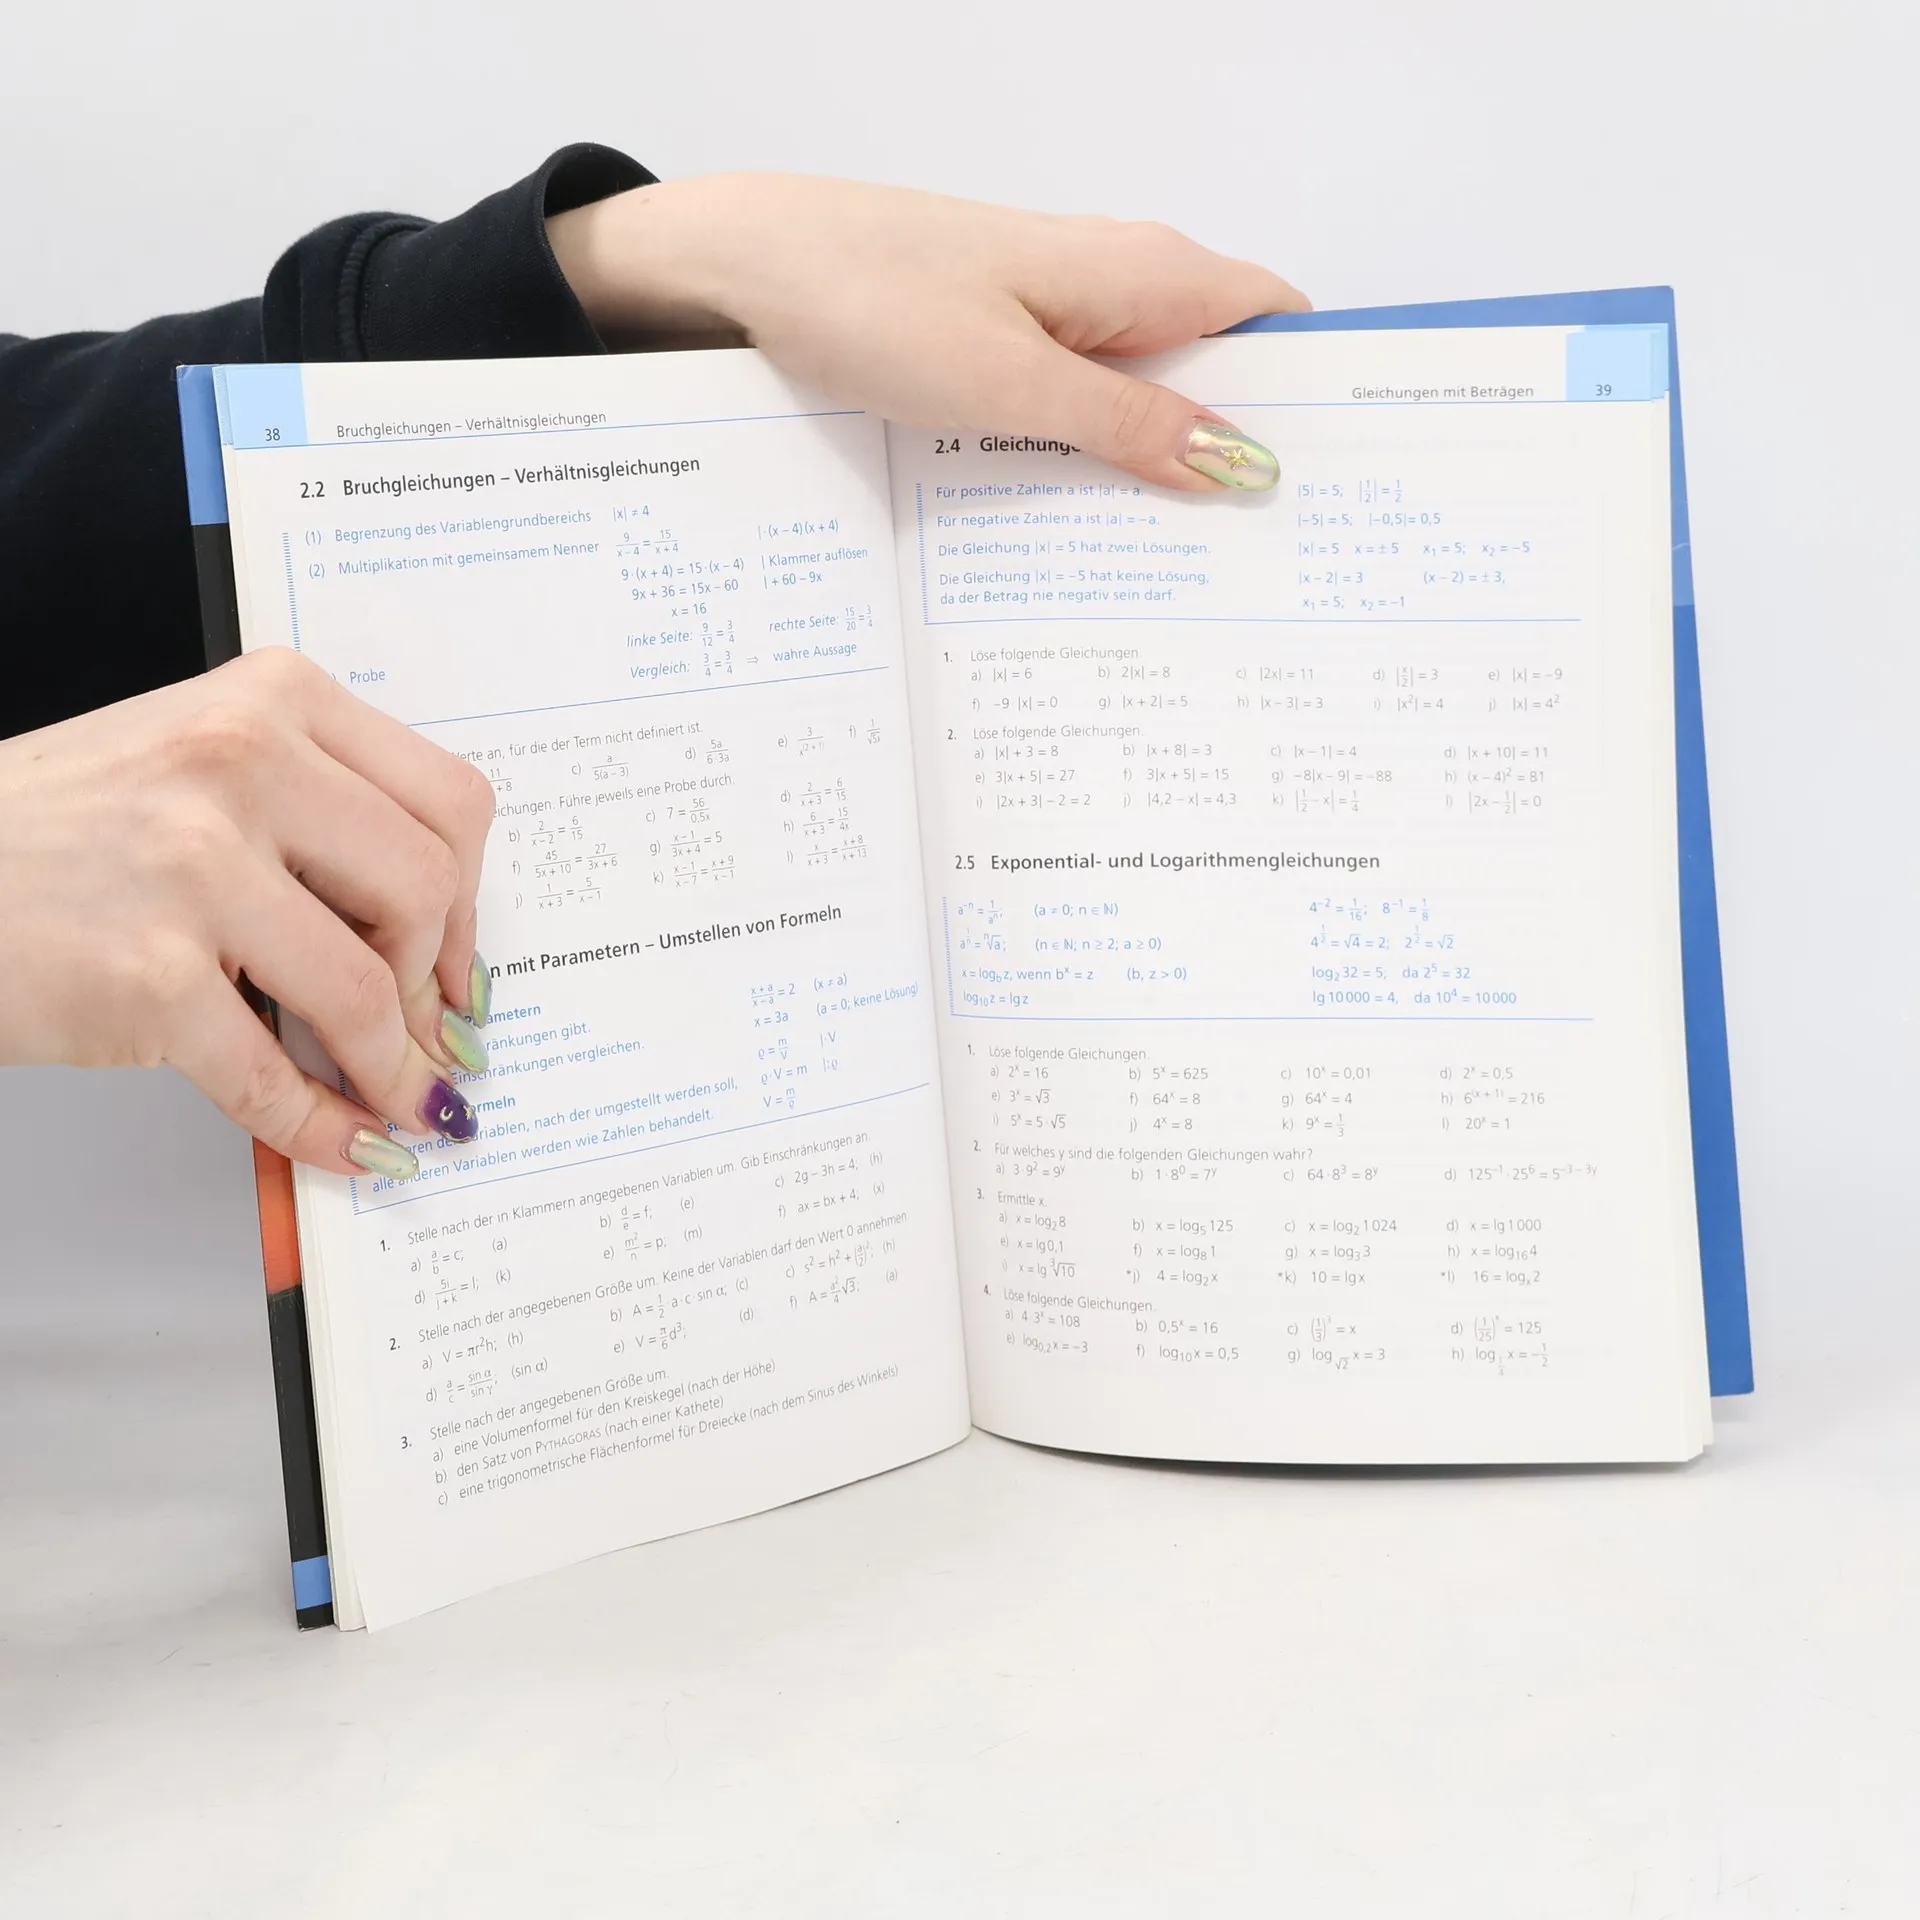 38 Bruchgleichungen – Verhältnisgleichungen
2.2 Bruchgleichungen – Verhältnisgleichungen
(1) Begrenzung des Variablengrundbereichs |x| ≠ 4
(2) Multiplikation mit gemeinsamem Nenner 9/(x – 4) = 15/(x + 4) | · (x – 4)(x + 4)
9 · (x + 4) = 15 · (x – 4) | Klammer auflösen
9x + 36 = 15x – 60 | + 60 – 9x
x = 16
linke Seite: 9/12 = 3/4 rechte Seite: 15/20 = 3/4
) Probe Vergleich: 3/4 = 3/4 ⇒ wahre Aussage
erte an, für die der Term nicht definiert ist.
11/ + 8 c) a/5(a – 3) d) 5a/6·3a e) 3/ f) 1/√5x
eichungen. Führe jeweils eine Probe durch.
b) 2/(x – 2) = 6/15 c) 7 = 56/0,5x d) 2/(x + 3) = 6/15
f) 45/(5x + 10) = 27/(3x + 6) g) (x – 1)/(3x + 4) = 5 h) 6/(x + 3) = 15/4x
j) 1/(x + 3) = 5/(x – 1) k) (x – 1)/(x – 7) = (x + 9)/(x – 1) l) x/(x + 3) = (x + 8)/(x + 13)
n mit Parametern – Umstellen von Formeln
ametern (x + a)/(x – a) = 2 (x ≠ a)
ränkungen gibt. x = 3a (a = 0; keine Lösung)
Einschränkungen vergleichen. ϱ = m/V | · V
ormeln ϱ · V = m | : ϱ
riablen, nach der umgestellt werden soll, V = m/ϱ
alle anderen Variablen werden wie Zahlen behandelt.
1. Stelle nach der in Klammern angegebenen Variablen um. Gib Einschränkungen an.
a) a/b = c; (a) b) d/e = f; (e) c) 2g – 3h = 4; (h)
d) 5i/(j + k) = l; (k) e) m²/n = p; (m) f) ax = bx + 4; (x)
2. Stelle nach der angegebenen Größe um. Keine der Variablen darf den Wert 0 annehmen
a) V = πr²h; (h) b) A = 1/2 · a · c · sin α; (c) c) s² = h² + (a/2)²; (h)
d) a/c = sin α/sin γ; (sin α) e) V = π/6 d³; (d) f) A = a²/4 √3; (a)
3. Stelle nach der angegebenen Größe um.
a) eine Volumenformel für den Kreiskegel (nach der Höhe)
b) den Satz von PYTHAGORAS (nach einer Kathete)
c) eine trigonometrische Flächenformel für Dreiecke (nach dem Sinus des Winkels)
Gleichungen mit Beträgen 39
2.4 Gleichung
Für positive Zahlen a ist |a| = a. |5| = 5; |1/2| = 1/2
Für negative Zahlen a ist |a| = –a. |–5| = 5; |–0,5| = 0,5
Die Gleichung |x| = 5 hat zwei Lösungen. |x| = 5 x = ± 5 x₁ = 5; x₂ = –5
Die Gleichung |x| = –5 hat keine Lösung, |x – 2| = 3 (x – 2) = ± 3,
da der Betrag nie negativ sein darf. x₁ = 5; x₂ = –1
1. Löse folgende Gleichungen.
a) |x| = 6 b) 2|x| = 8 c) |2x| = 11 d) |x/2| = 3 e) |x| = –9
f) –9 · |x| = 0 g) |x + 2| = 5 h) |x – 3| = 3 i) |x²| = 4 j) |x| = 4²
2. Löse folgende Gleichungen.
a) |x| + 3 = 8 b) |x + 8| = 3 c) |x – 1| = 4 d) |x + 10| = 11
e) 3|x + 5| = 27 f) 3|x + 5| = 15 g) –8|x – 9| = –88 h) (x – 4)² = 81
i) |2x + 3| – 2 = 2 j) |4,2 – x| = 4,3 k) |1/2 – x| = 1/4 l) |2x – 1/2| = 0
2.5 Exponential- und Logarithmengleichungen
a⁻ⁿ = 1/aⁿ; (a ≠ 0; n ∈ ℕ) 4⁻² = 1/16; 8⁻¹ = 1/8
a^(1/n) = ⁿ√a; (n ∈ ℕ; n ≥ 2; a ≥ 0) 4^(1/2) = √4 = 2; 2^(1/2) = √2
x = log_b z, wenn bˣ = z (b, z > 0) log₂ 32 = 5, da 2⁵ = 32
log₁₀ z = lg z lg 10 000 = 4, da 10⁴ = 10 000
1. Löse folgende Gleichungen.
a) 2ˣ = 16 b) 5ˣ = 625 c) 10ˣ = 0,01 d) 2ˣ = 0,5
e) 3ˣ = √3 f) 64ˣ = 8 g) 64ˣ = 4 h) 6^(x + 1) = 216
i) 5ˣ = 5 · √5 j) 4ˣ = 8 k) 9ˣ = 1/3 l) 20ˣ = 1
2. Für welches y sind die folgenden Gleichungen wahr?
a) 3 · 9² = 9ʸ b) 1 · 8⁰ = 7ʸ c) 64 · 8³ = 8ʸ d) 125⁻¹ · 25⁶ = 5^(–3 – 3y)
3. Ermittle x.
a) x = log₂ 8 b) x = log₅ 125 c) x = log₂ 1 024 d) x = lg 1 000
e) x = lg 0,1 f) x = log₈ 1 g) x = log₃ 3 h) x = log₁₆ 4
i) x = lg ³√10 *j) 4 = log₂ x *k) 10 = lg x *l) 16 = logₓ 2
4. Löse folgende Gleichungen.
a) 4 · 3ˣ = 108 b) 0,5ˣ = 16 c) (1/3)³ = x d) (1/25)ˣ = 125
e) log₀,₂ x = –3 f) log₁₀ x = 0,5 g) log_√2 x = 3 h) log_1/4 x = –1/2